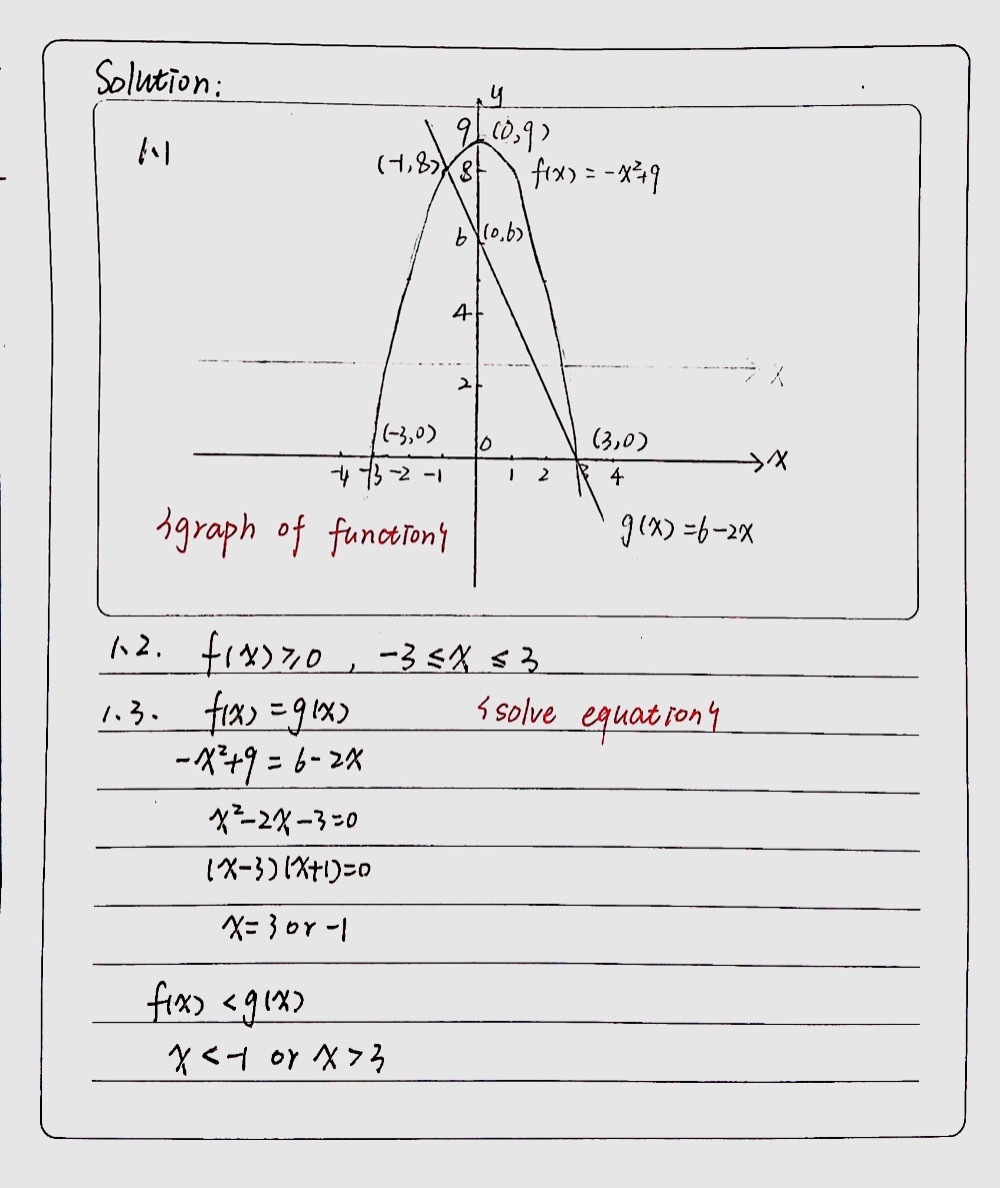 Solution:
1.1
y
9 (0,9)
(-1,8) 8 f(x) = -x²+9
6 (0,6)
4
x
2
(-3,0) 0 (3,0)
x
-4 -3 -2 -1 1 2 3 4
g(x) = 6-2x
{graph of function}
1.2. f(x) ≥ 0 , -3 ≤ x ≤ 3
1.3. f(x) = g(x) {solve equation}
-x²+9 = 6-2x
x²-2x-3=0
(x-3)(x+1)=0
x=3 or -1
f(x) < g(x)
x < -1 or x > 3